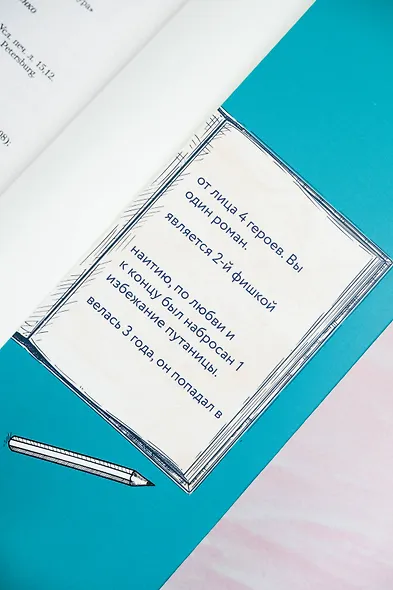 ура»
енко
Усл. печ. л. 15,12.
Petersburg.
98).
от лица 4 героев. Вы
один роман.
является 2-й фишкой
наитию, по любви и
к концу был набросан 1
избежание путаницы.
велась 3 года, он попадал в